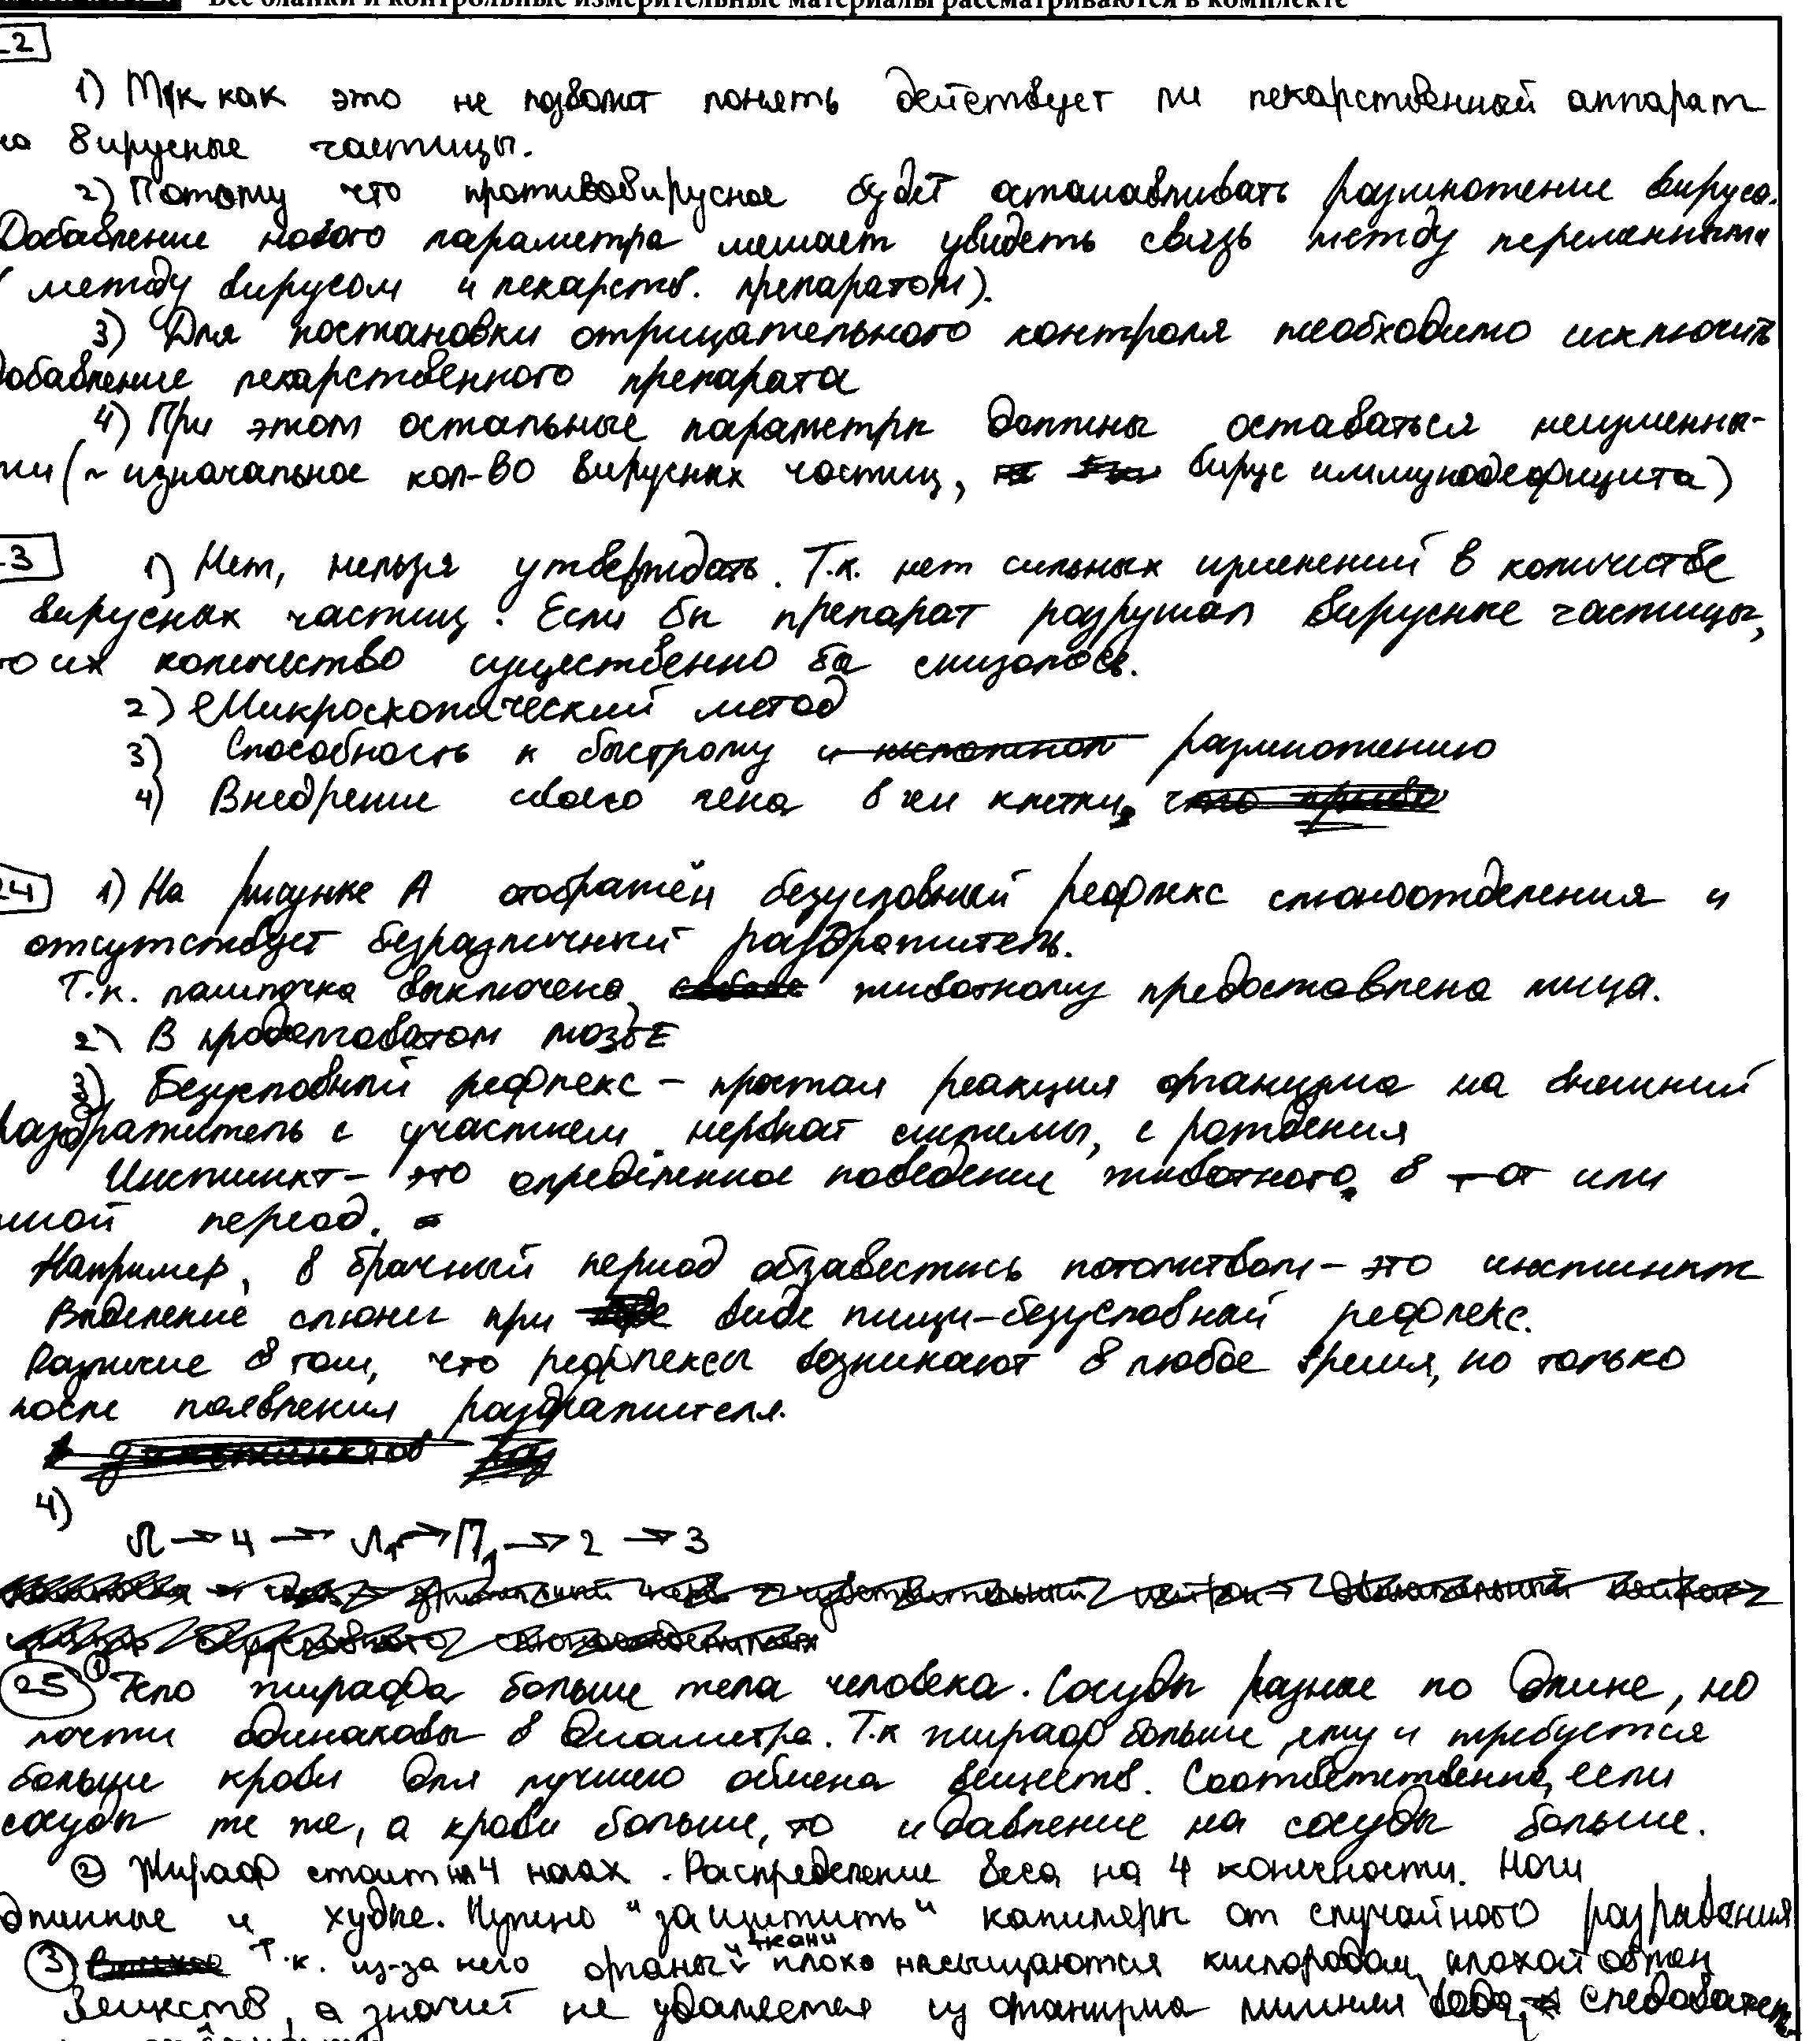 Все бланки и контрольные измерительные материалы рассматриваются в комплекте
22
1) Так как это не позволит понять действует ли лекарственный аппарат
на вирусные частицы.
2) Потому что противовирусное будет останавливать размножение вируса.
Добавление нового параметра мешает увидеть связь между переменными
(между вирусом и лекарств. препаратом).
3) Для постановки отрицательного контроля необходимо исключить
добавление лекарственного препарата
4) При этом остальные параметры должны оставаться неизменны-
ми (~ изначальное кол-во вирусных частиц, вирус иммунодефицита)
23 1) Нет, нельзя утверждать. Т.к. нет сильных изменений в количестве
вирусных частиц. Если бы препарат разрушал вирусные частицы,
то их количество существенно бы снизолось.
2) Микроскопический метод
3) Способность к быстрому размножению
4) Внедрение своего гена в ген клетки
24 1) На рисунке А отображён безусловный рефлекс слюноотделения и
отсутствует безразличный раздражитель.
Т.к. лампочка выключена, животному предоставлена пища.
2) В продолговатом мозге
3) Безусловный рефлекс - простая реакция организма на внешний
раздражитель с участием нервной системы, с рождения
Инстинкт - это определенное поведение животного в тот или
иной период.
Например, в брачный период обзавестись потомством - это инстинкт
Выделение слюны при виде пищи - безусловный рефлекс.
Различие в том, что рефлексы возникают в любое время, но только
после появления раздражителя.
4)
Л → 4 → Л1 → П1 → 2 → 3
25 1 Тело жирафа больше тела человека. Сосуды разные по длине, но
почти одинаковы в диаметре. Т.к жираф больше, ему и требуется
больше крови для лучшего обмена веществ. Соответственно, если
сосуды те же, а крови больше, то и давление на сосуды больше.
2 Жираф стоит на 4 ногах. Распределение веса на 4 конечности. Ноги
длинные и худые. Нужно "защитить" капилляры от случайного разрывания
3 Т.к. из-за него органы и ткани плохо насыщаются кислородом, плохой обмен
веществ, а значит не удаляется из организма лишняя вода, следователь-